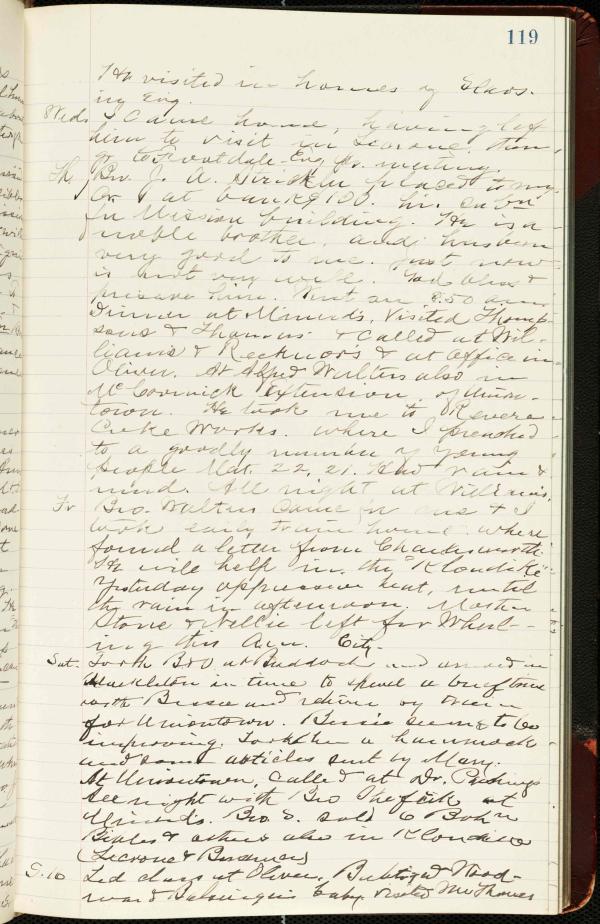 119
He visited in homes of Slavs.
in Eng.
Weds I came home, having left
him to visit in Leisone. then
go to Scottdale Eng for meeting.
Th Bro. J. A. Strickler placed to my
Cr at bank $100. his sub'n
in Mission building. He is a
noble brother, and has been
very good to me. just now
is not very well. God bless &
preserve him. Went on 8:50 am
Dinner at Minerd's. Visited Thomp-
sons & Thomas & called at Wil-
liams & Recknors & at office in
Oliver. At Alfred Walters also in
McCormick extension of Union-
town. He took me to Revere
Coke Works. where I preached
to a goodly number of young
people Mat. 22, 21. Had rain &
wind. All night at
Fr Bro. Walters came for me & I
took early train home. where
found a letter from Charlesworth.
He will help in the "Klondike"
Yesterday oppressive heat, until
the rain in afternoon. Mother
Stone & Nellie left for Wheel-
ing this A.m. City.
Sat. Took B&O at Braddock and arrived in
in time to spend a brief time
with Bessie and return by train
for Uniontown. Bessie seems to be
improving. Took her a hammock
and some articles sent by Mary.
At Uniontown, called at Dr.
All night with Bro at
Minerd's. Bro S. sold 6 Boh'n
Bibles & others also in Klondike
(Leisone &
S. 10 Led class at Oliver. Baptized Wood-
ward baby. Visited Mr Thomas